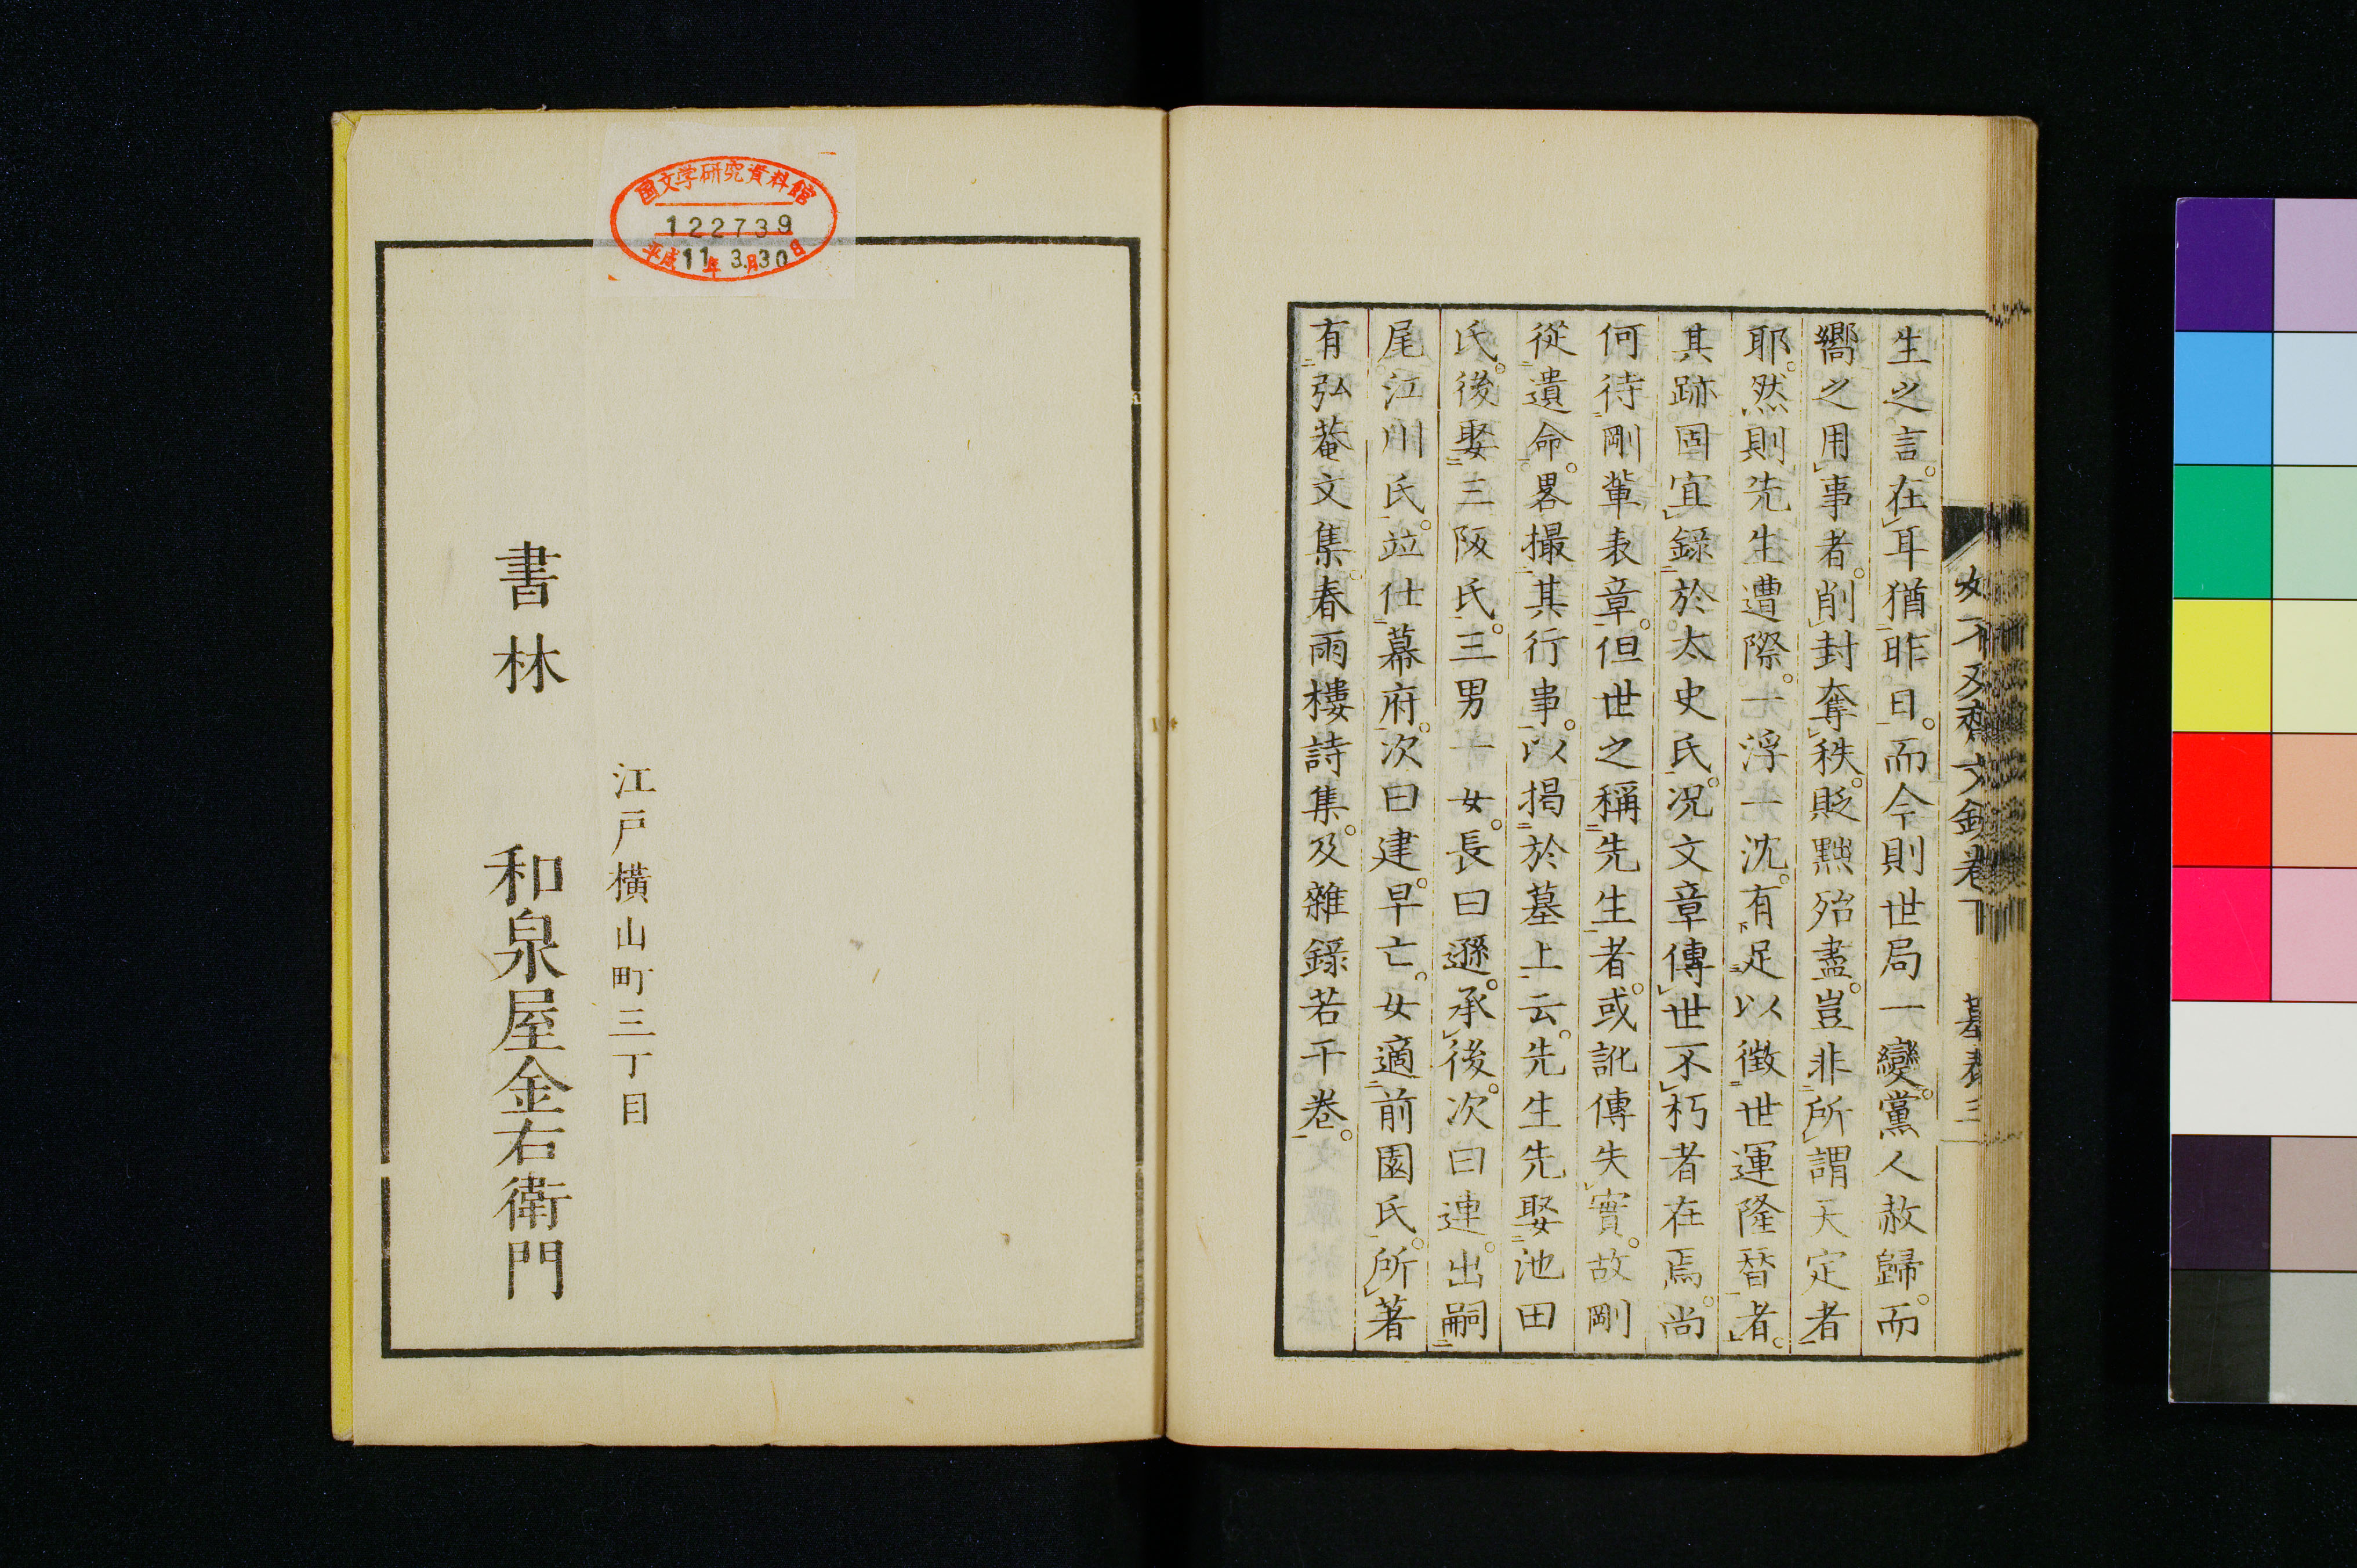 生之言。在耳猶昨日。而今則世局一變。黨人赦歸。而
嚮之用事者。削封奪秩。貶黜殆盡。豈非所謂天定者
耶。然則先生遭際。一浮一沈。有足以徴世運隆替者。
其跡固宜錄於太史氏。況文章傳世不朽者在焉。尚
何待剛輩表章。但世之稱先生者。或訛傳失實。故剛
從遺命。畧撮其行事。以掲於墓上云。先生先娶池田
氏。後娶三阪氏。三男一女。長曰遜。承後。次曰連。出嗣
尾江川氏。竝仕幕府。次曰建。早亡。女適前園氏。所著
有弘菴文集。春雨樓詩集。及雜錄若干卷。
墓表三
江戸橫山町三丁目
書林 和泉屋金右衛門
国文学研究資料館
122739
平成11年3月30日